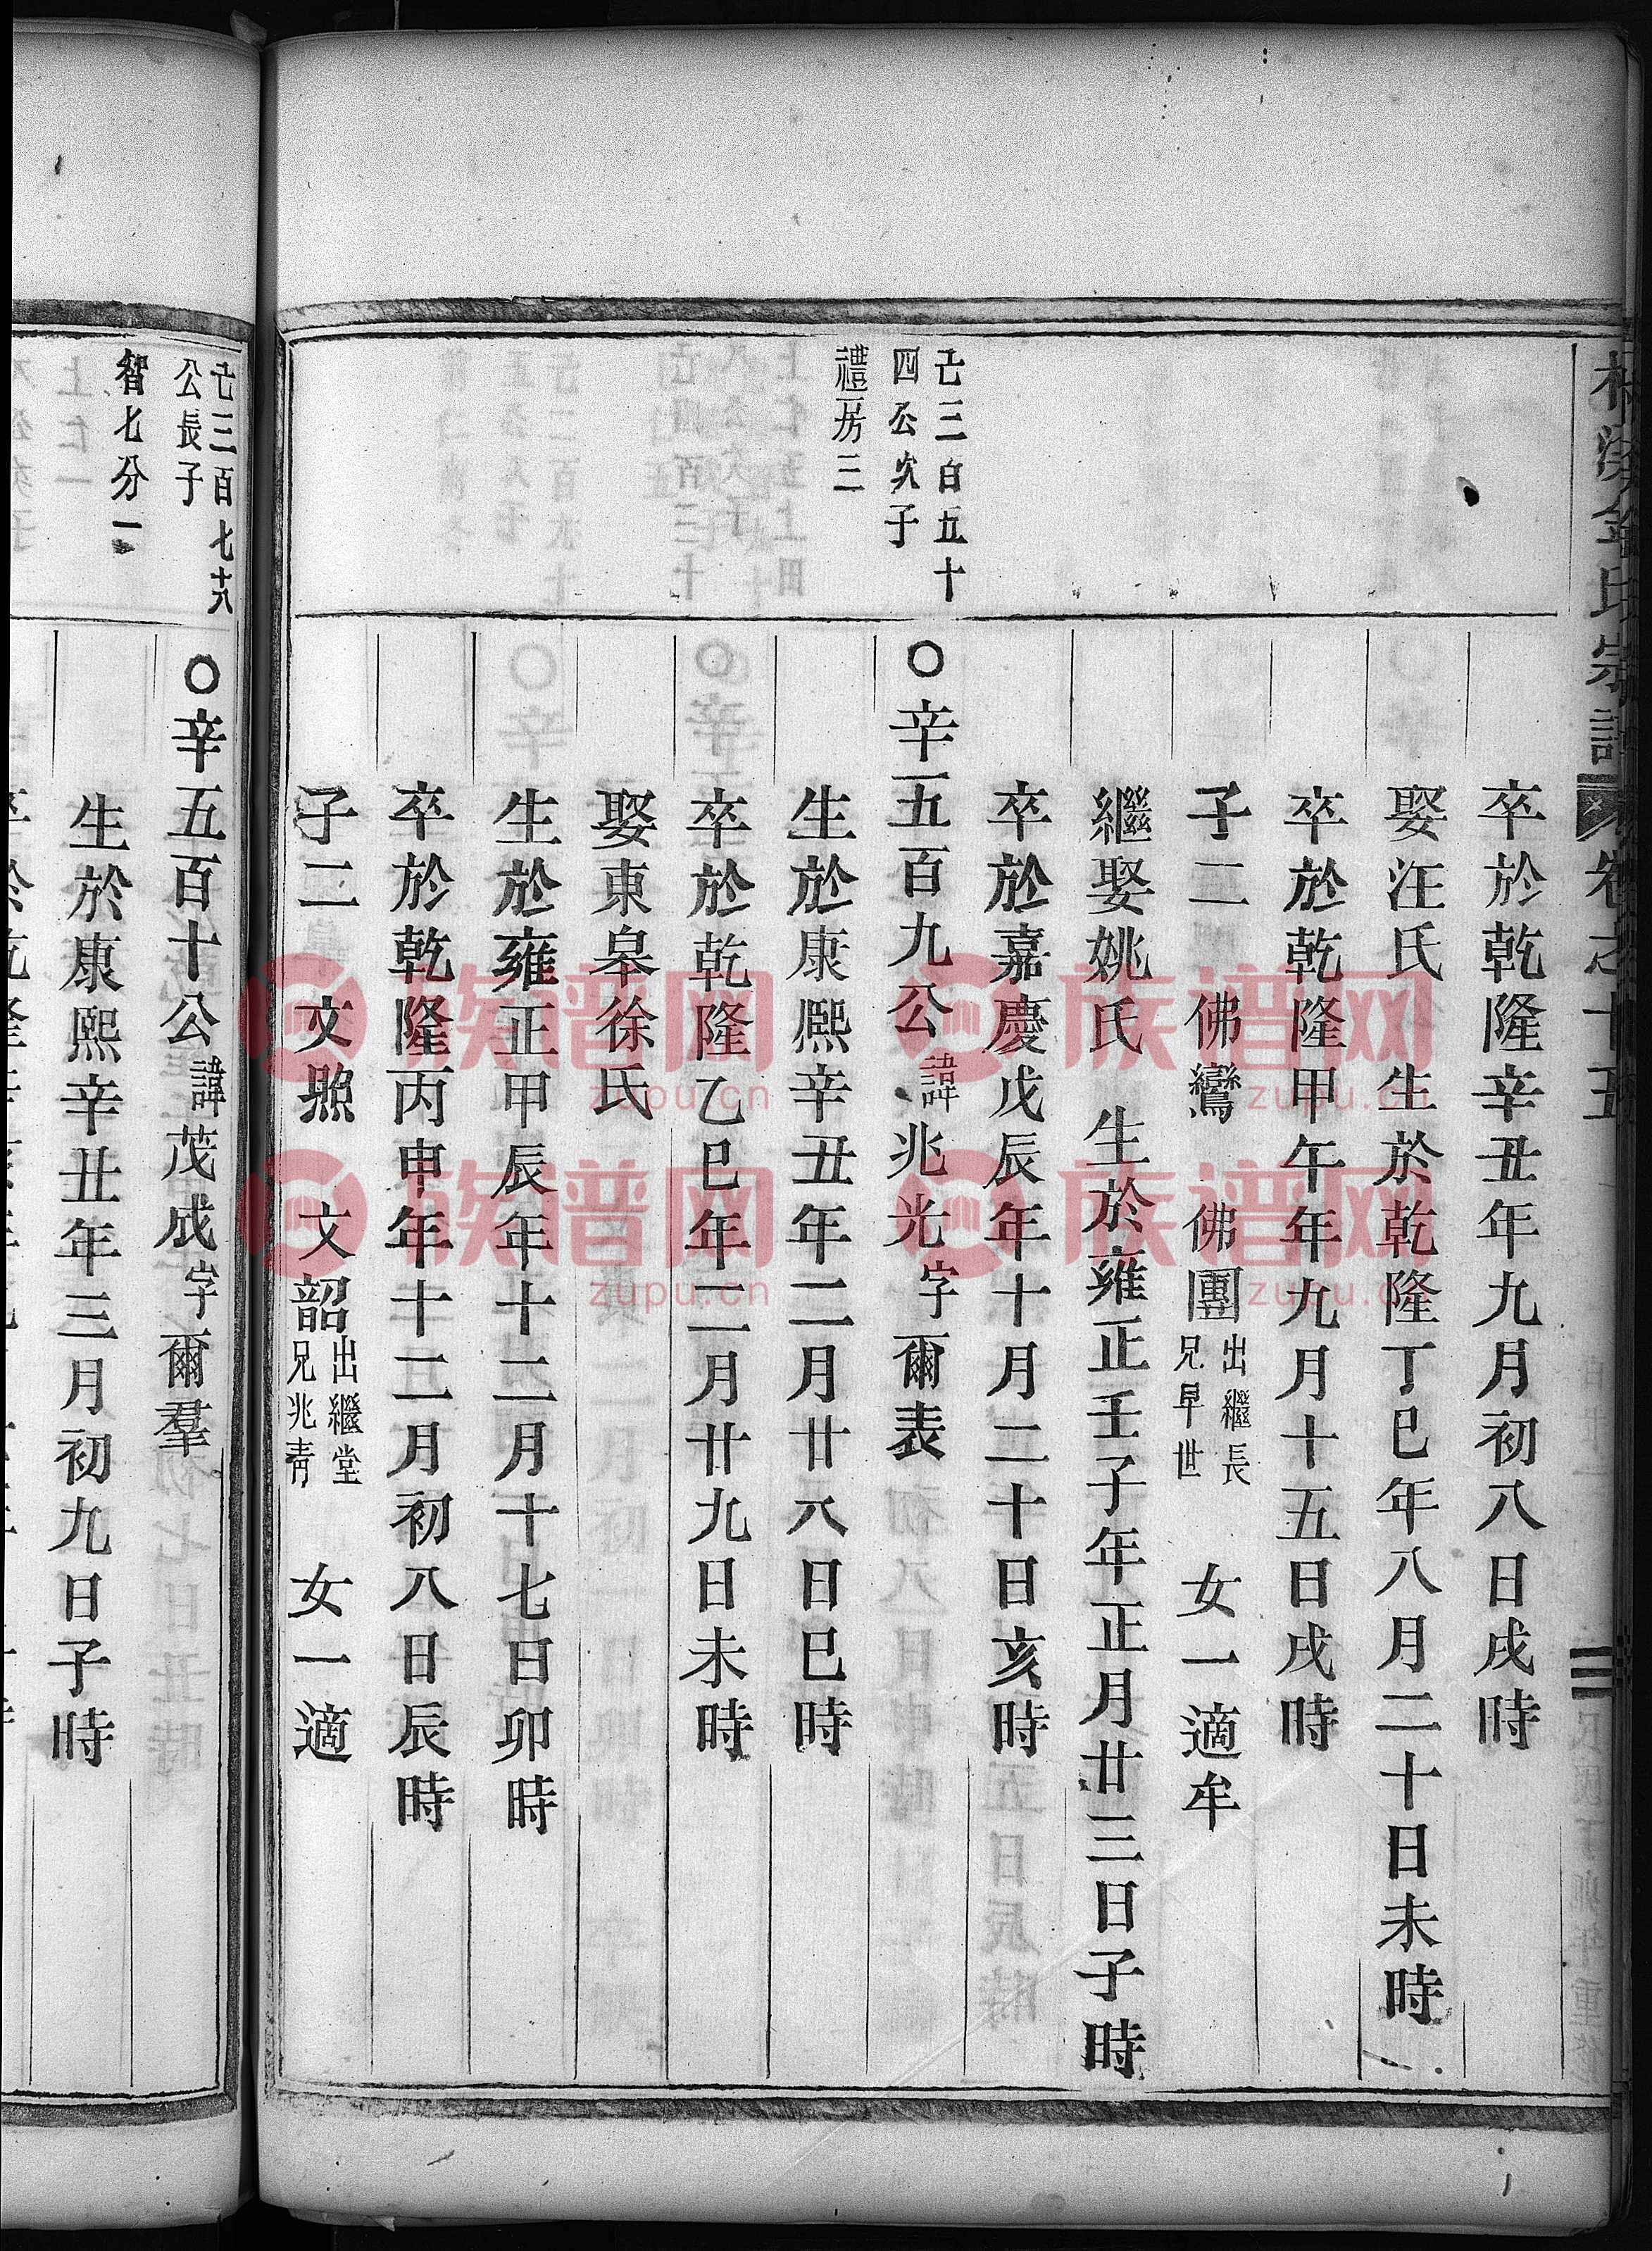 卒於乾隆辛丑年九月初八日戌時
娶汪氏 生於乾隆丁巳年八月二十日未時
卒於乾隆甲午年九月十五日戌時
子二 佛鸞 佛團 出繼長兄早世 女一適牟
繼娶姚氏 生於雍正壬子年正月廿三日子時
卒於嘉慶戊辰年十月二十日亥時
亡三百五十
四公次子
禮房三
○辛五百九公 諱兆光 字爾表
生於康熙辛丑年二月廿八日巳時
卒於乾隆乙巳年二月廿九日未時
娶東皋徐氏
生於雍正甲辰年十二月十七日卯時
卒於乾隆丙申年十二月初八日辰時
子二 文照 文韶 出繼堂兄兆靑 女一適
亡三百七十八
公長子
智七分一
○辛五百十公 諱茂成 字爾羣
生於康熙辛丑年三月初九日子時
族譜网
zupu.cn
族譜网
zupu.cn
族譜网
zupu.cn
族譜网
zupu.cn